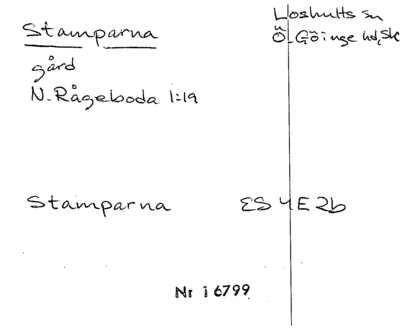 Stamparna
Loshults sn
Ö. Göinge hd, Sk
gård
N. Rågeboda 1:19
Stamparna ES 4E 2b
Nr i 6799